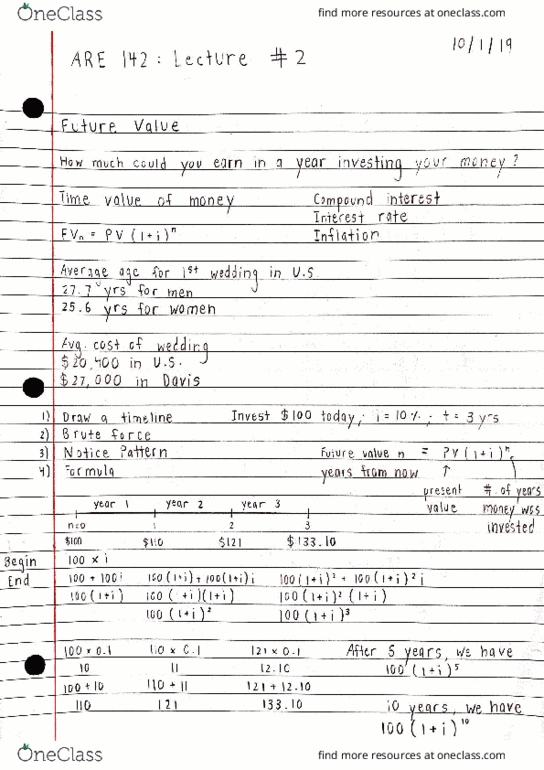 OneClass find more resources at oneclass.com
10/1/19
ARE 142: Lecture #2
Future Value
How much could you earn in a year investing your money?
Time value of money Compound interest
Interest rate
FVₙ = PV (1+i)ⁿ Inflation
Average age for 1st wedding in U.S
27.7 yrs for men
25.6 yrs for women
Avg. cost of wedding
$20,400 in U.S.
$27,000 in Davis
1) Draw a timeline Invest $100 today; i = 10%; t = 3 yrs
2) Brute force
3) Notice Pattern Future value n = PV (1+i)ⁿ
4) Formula years from now ↑
present # of years
year 1 year 2 year 3 value money was
invested
n=0 1 2 3
$100 $110 $121 $133.10
Begin 100 × i
End 100 + 100i 100(1+i) + 100(1+i)i 100(1+i)² + 100(1+i)²i
100(1+i) 100(1+i)(1+i) 100(1+i)²(1+i)
100(1+i)² 100(1+i)³
100 × 0.1 110 × 0.1 121 × 0.1 After 5 years, we have
10 11 12.10 100(1+i)⁵
100 + 10 110 + 11 121 + 12.10
110 121 133.10 10 years, we have
100(1+i)¹⁰
OneClass find more resources at oneclass.com